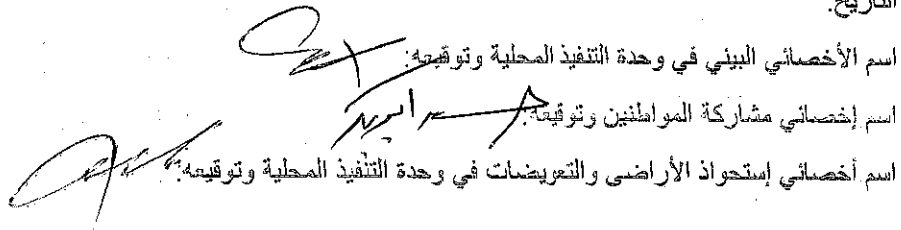 التاريخ:
اسم الأخصائي البيئي في وحدة التنفيذ المحلية وتوقيعه:
اسم إخصائي مشاركة المواطنين وتوقيعه:
اسم أخصائي إستحواذ الأراضى والتعويضات في وحدة التنفيذ المحلية وتوقيعه: